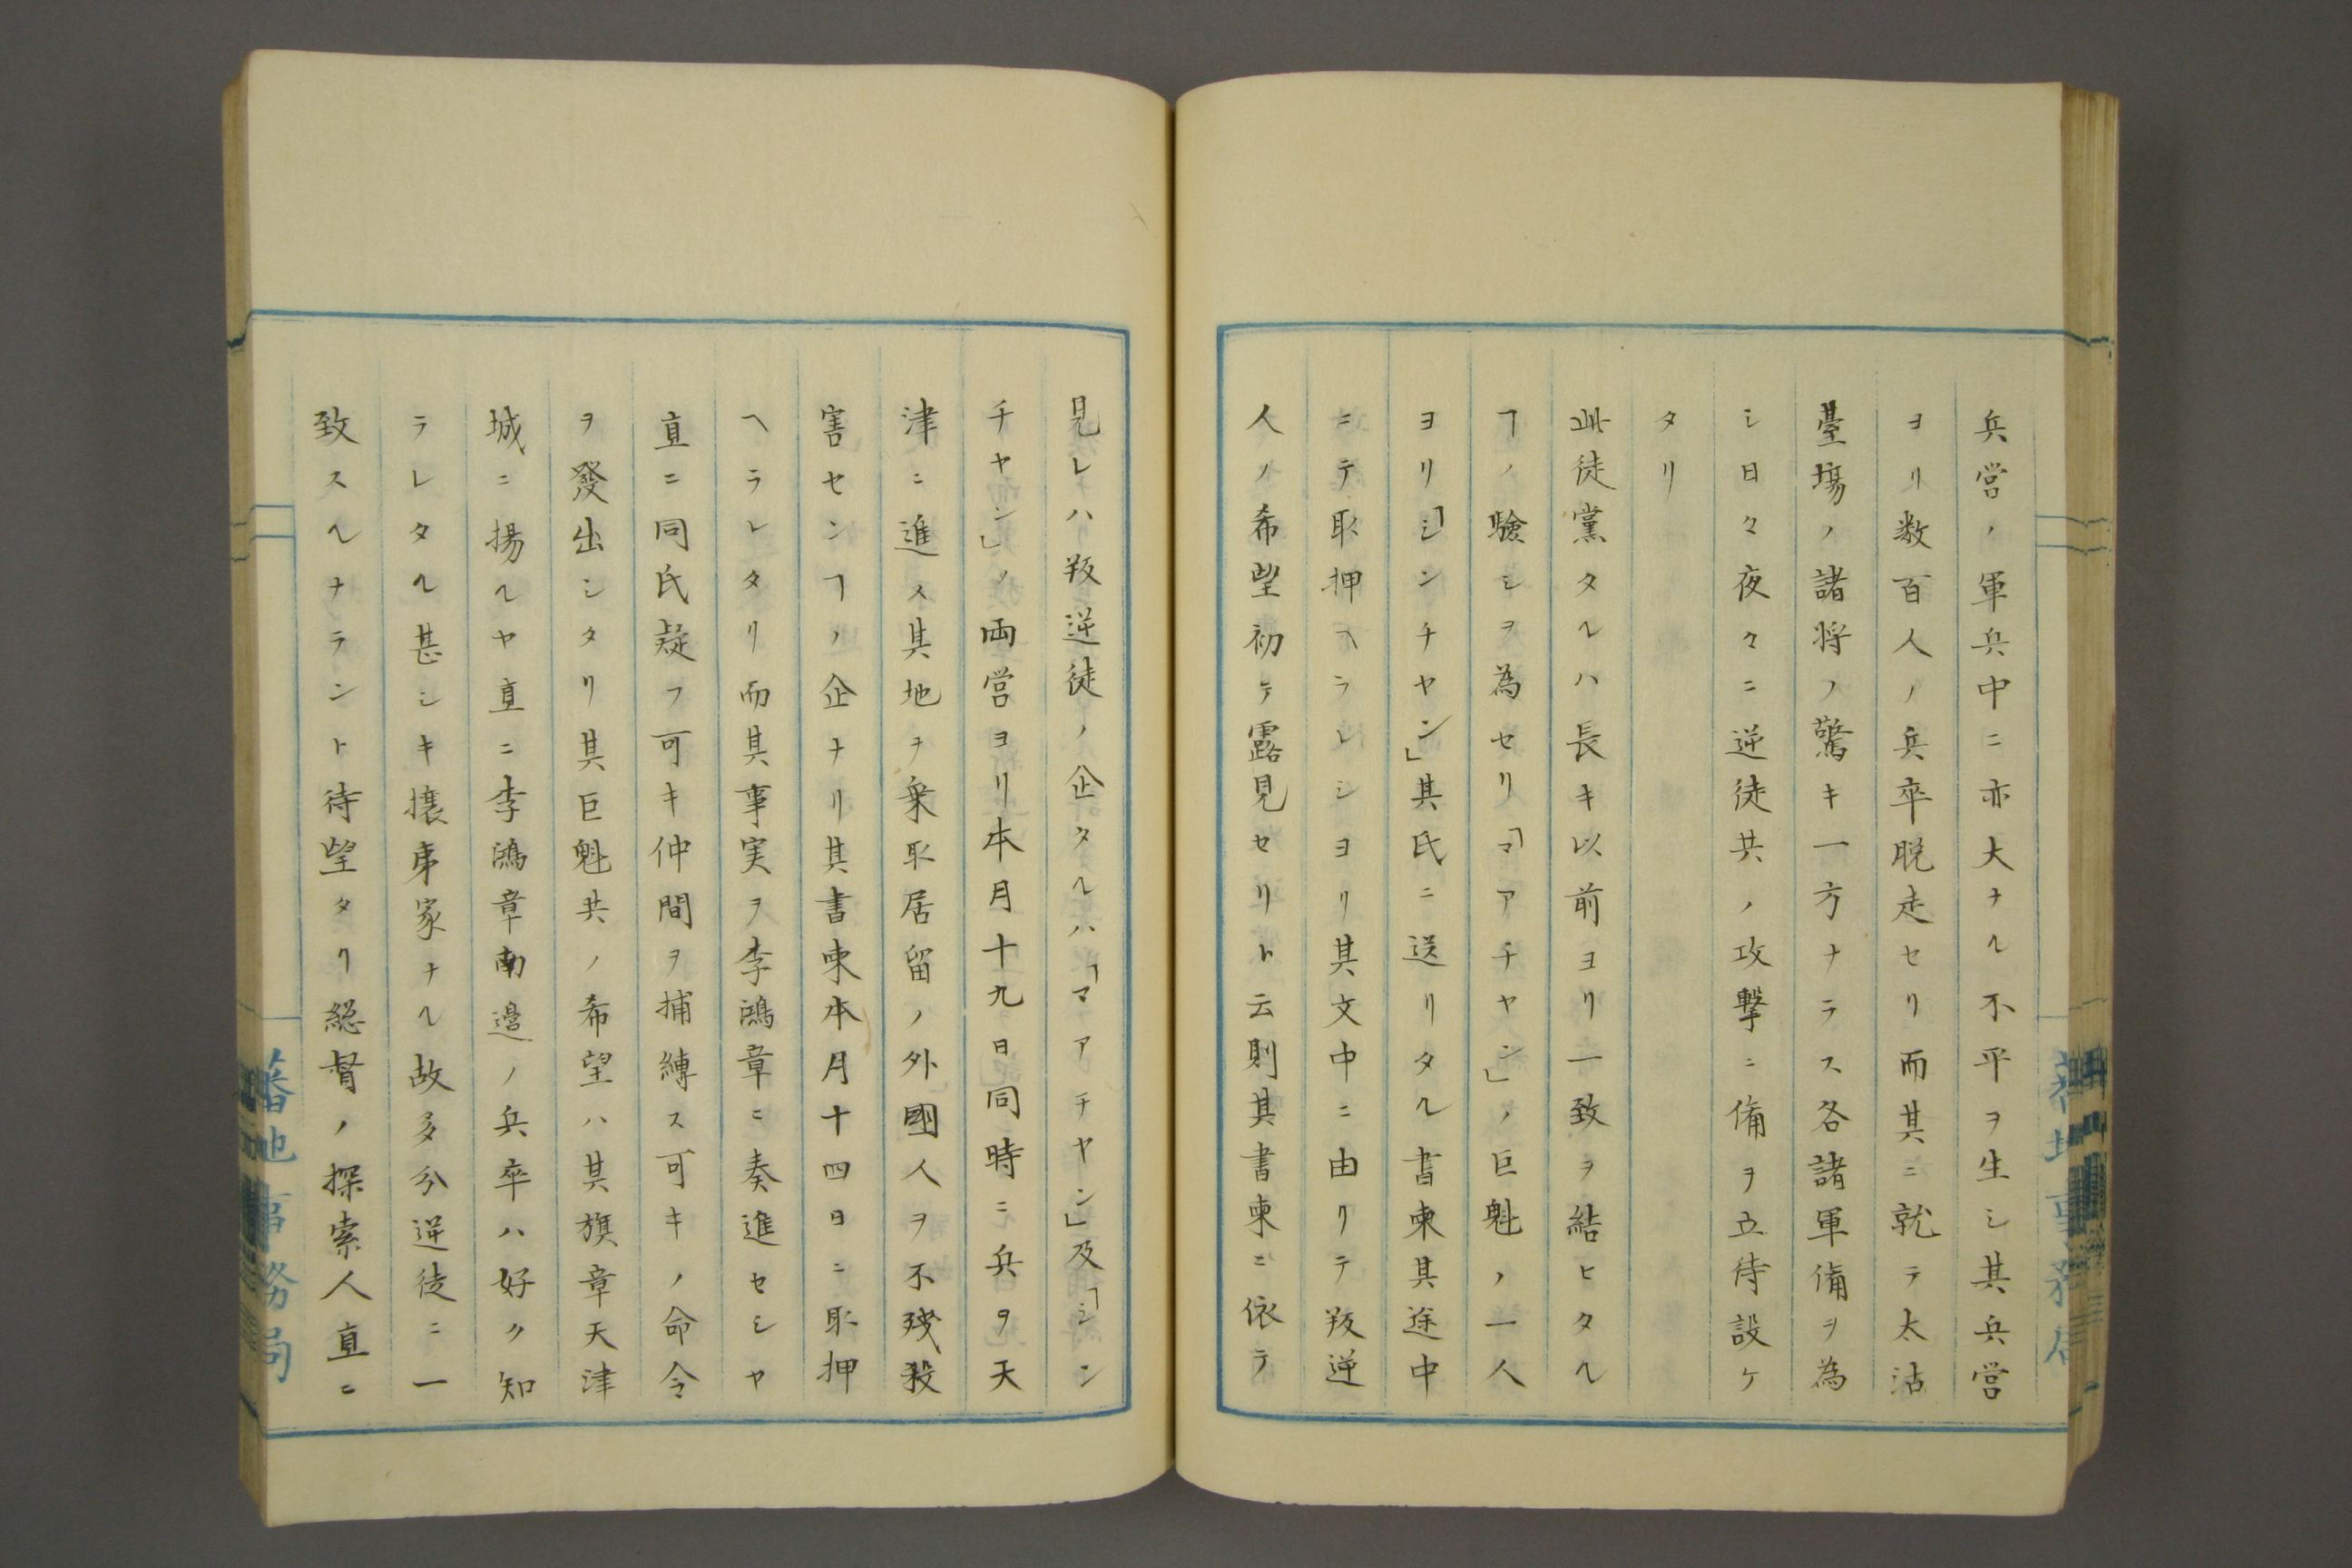 兵営ノ軍兵中ニ亦大ナル不平ヲ生シ其兵営
ヨリ数百人ノ兵卒脱走セリ而其ニ就テ太沽
臺場ノ諸将ノ驚キ一方ナラス各諸軍備ヲ為
シ日々夜々ニ逆徒共ノ攻撃ニ備ヲ立待設ケ
タリ
此徒黨タルハ長キ以前ヨリ一致ヲ結ヒタル
ヿノ験シヲ為セリ「マアチヤン」ノ巨魁ノ一人
ヨリ「シンチヤン」其氏ニ送リタル書柬其途中
ニテ取押ヘラレシヨリ其文中ニ由リテ叛逆
人ノ希望初テ露見セリト云則其書柬ニ依テ
見レハ叛逆徒ノ企タルハ「マアチヤン」及「シン
チヤン」ノ両営ヨリ本月十九日同時ニ兵ヲ天
津ニ進メ其地ヲ乗取居留ノ外國人ヲ不残殺
害センヿノ企ナリ其書柬本月十四日ニ取押
ヘラレタリ而其事実ヲ李鴻章ニ奏進セシヤ
直ニ同氏疑フ可キ仲間ヲ捕縛ス可キノ命令
ヲ發出シタリ其巨魁共ノ希望ハ其旗章天津
城ニ揚ルヤ直ニ李鴻章南邉ノ兵卒ハ好ク知
ラレタル甚シキ攘夷家ナル故多分逆徒ニ一
致スルナラント待望タリ総督ノ探索人直ニ
蕃地事務局